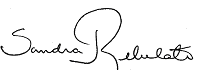 Sandra Rebulato